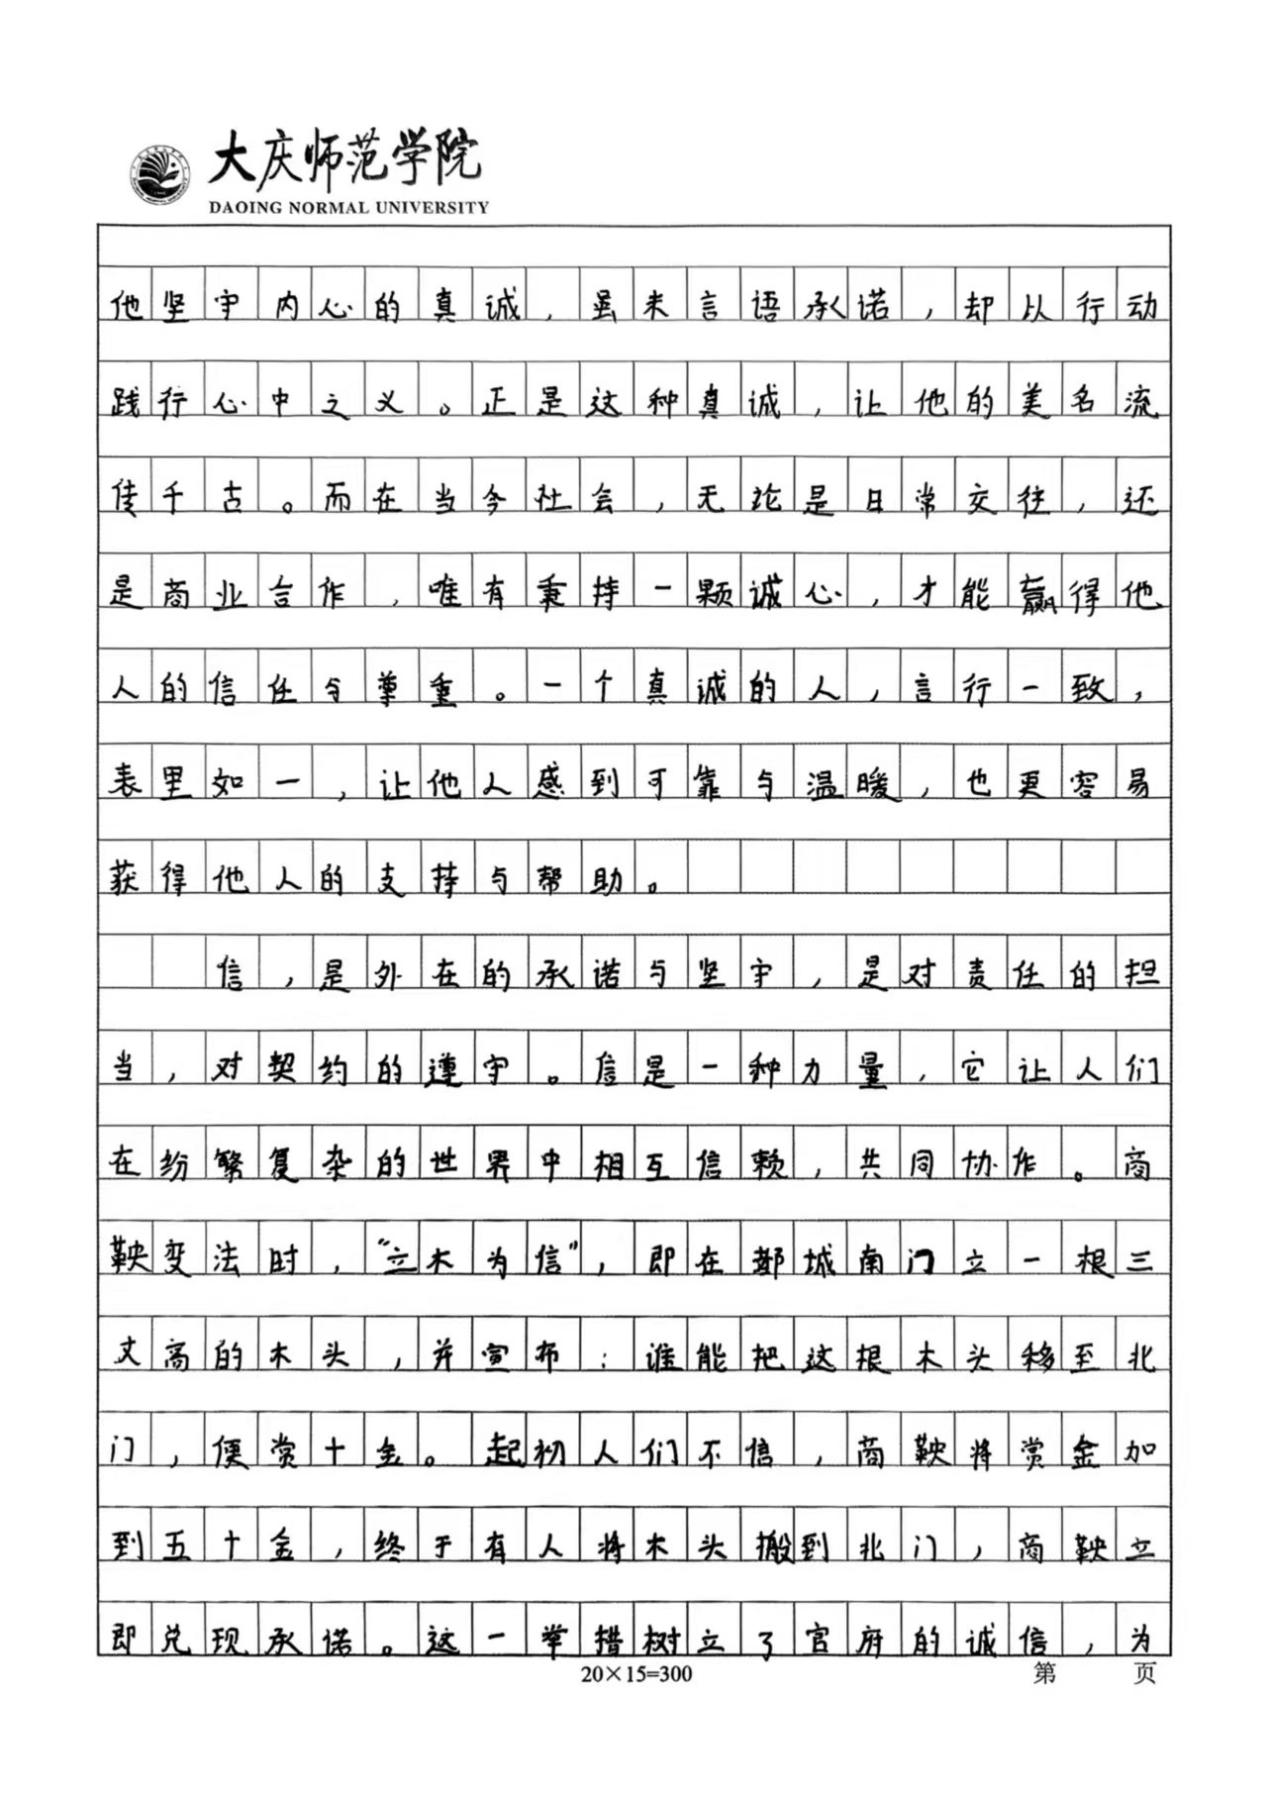 大庆师范学院
DAOING NORMAL UNIVERSITY
他坚守内心的真诚，虽未言语承诺，却以行动
践行心中之义。正是这种真诚，让他的美名流
传千古。而在当今社会，无论是日常交往，还
是商业合作，唯有秉持一颗诚心，才能赢得他
人的信任与尊重。一个真诚的人，言行一致，
表里如一，让他人感到可靠与温暖，也更容易
获得他人的支持与帮助。
信，是外在的承诺与坚守，是对责任的担
当，对契约的遵守。信是一种力量，它让人们
在纷繁复杂的世界中相互信赖，共同协作。商
鞅变法时，“立木为信”，即在都城南门立一根三
丈高的木头，并宣布：谁能把这根木头移至北
门，便赏十金。起初人们不信，商鞅将赏金加
到五十金，终于有人将木头搬到北门，商鞅立
即兑现承诺。这一举措树立了官府的诚信，为
20×15=300
第 页